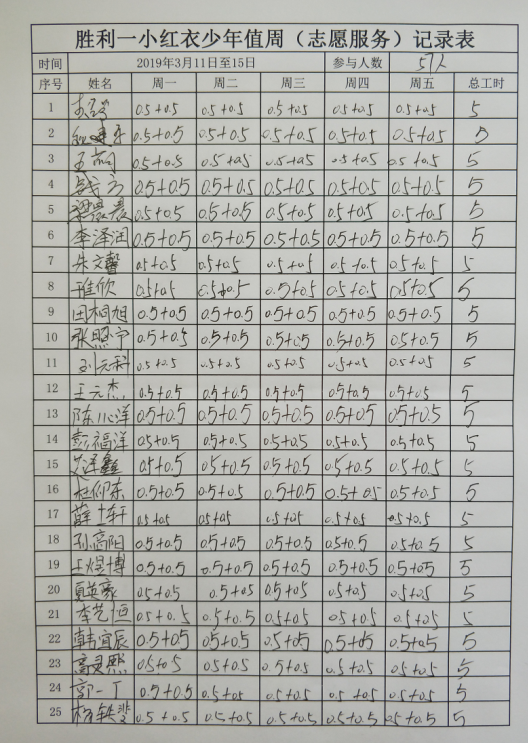 胜利一小红衣少年值周（志愿服务）记录表
时间 2019年3月11日至15日 参与人数 57人
序号 姓名 周一 周二 周三 周四 周五 总工时
1 0.5+0.5 0.5+0.5 0.5+0.5 0.5+0.5 0.5+0.5 5
2 0.5+0.5 0.5+0.5 0.5+0.5 0.5+0.5 0.5+0.5 5
3 0.5+0.5 0.5+0.5 0.5+0.5 0.5+0.5 0.5+0.5 5
4 0.5+0.5 0.5+0.5 0.5+0.5 0.5+0.5 0.5+0.5 5
5 梁晨晨 0.5+0.5 0.5+0.5 0.5+0.5 0.5+0.5 0.5+0.5 5
6 李泽润 0.5+0.5 0.5+0.5 0.5+0.5 0.5+0.5 0.5+0.5 5
7 朱文馨 0.5+0.5 0.5+0.5 0.5+0.5 0.5+0.5 0.5+0.5 5
8 0.5+0.5 0.5+0.5 0.5+0.5 0.5+0.5 0.5+0.5 5
9 田桐旭 0.5+0.5 0.5+0.5 0.5+0.5 0.5+0.5 0.5+0.5 5
10 张熙宁 0.5+0.5 0.5+0.5 0.5+0.5 0.5+0.5 0.5+0.5 5
11 0.5+0.5 0.5+0.5 0.5+0.5 0.5+0.5 0.5+0.5 5
12 王元杰 0.5+0.5 0.5+0.5 0.5+0.5 0.5+0.5 0.5+0.5 5
13 陈心洋 0.5+0.5 0.5+0.5 0.5+0.5 0.5+0.5 0.5+0.5 5
14 彭福洋 0.5+0.5 0.5+0.5 0.5+0.5 0.5+0.5 0.5+0.5 5
15 艾泽鑫 0.5+0.5 0.5+0.5 0.5+0.5 0.5+0.5 0.5+0.5 5
16 杜仰东 0.5+0.5 0.5+0.5 0.5+0.5 0.5+0.5 0.5+0.5 5
17 0.5+0.5 0.5+0.5 0.5+0.5 0.5+0.5 0.5+0.5 5
18 孙高阳 0.5+0.5 0.5+0.5 0.5+0.5 0.5+0.5 0.5+0.5 5
19 王煜博 0.5+0.5 0.5+0.5 0.5+0.5 0.5+0.5 0.5+0.5 5
20 夏英豪 0.5+0.5 0.5+0.5 0.5+0.5 0.5+0.5 0.5+0.5 5
21 李艺恒 0.5+0.5 0.5+0.5 0.5+0.5 0.5+0.5 0.5+0.5 5
22 韩宜辰 0.5+0.5 0.5+0.5 0.5+0.5 0.5+0.5 0.5+0.5 5
23 高灵熙 0.5+0.5 0.5+0.5 0.5+0.5 0.5+0.5 0.5+0.5 5
24 郭一丁 0.5+0.5 0.5+0.5 0.5+0.5 0.5+0.5 0.5+0.5 5
25 杨轶斐 0.5+0.5 0.5+0.5 0.5+0.5 0.5+0.5 0.5+0.5 5